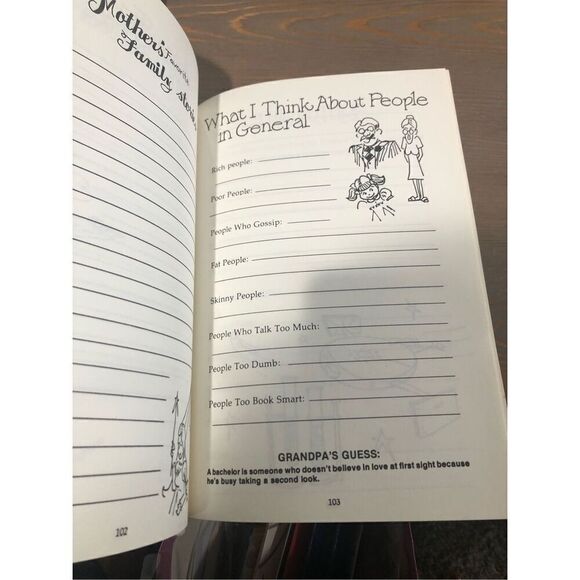 Mother's Favorite
Family stories
102
What I Think About People
in General
Rich people:
Poor People:
People Who Gossip:
Fat People:
Skinny People:
People Who Talk Too Much:
People Too Dumb:
People Too Book Smart:
GRANDPA'S GUESS:
A bachelor is someone who doesn't believe in love at first sight because
he's busy taking a second look.
103